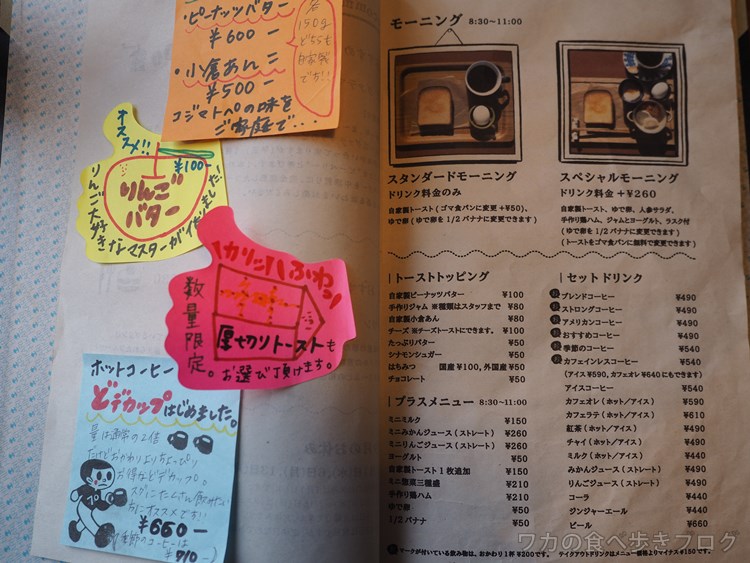 ・ピーナッツバター
¥600-
・小倉あんこ
¥500-
各150g
どちらも
自家製
です!!
コジマトペの味を
ご家庭で・・・
オススメ!!
¥100-
りんご
バター
りんご大好きなマスターが作りました!
カリッ!!ふわっ
数量限定。
厚切りトーストも
お選び頂けます。
ホットコーヒー
どデカップはじめました。
量は通常の2倍
だけどおかわりよりちょっぴり
お得などデカップ。
スグにたくさん飲みたい
方にオススメです!!
¥660-
季節のコーヒーは
¥710-
モーニング 8:30~11:00
スタンダードモーニング
ドリンク料金のみ
自家製トースト(ゴマ食パンに変更+¥50)、
ゆで卵(ゆで卵を1/2バナナに変更できます)
スペシャルモーニング
ドリンク料金+¥260
自家製トースト、ゆで卵、人参サラダ、
手作り鶏ハム、ジャムとヨーグルト、ラスク付
(ゆで卵を1/2バナナに変更できます)
(トーストをゴマ食パンに無料で変更できます)
トーストトッピング
自家製ピーナッツバター ¥100
手作りジャム ※種類はスタッフまで ¥80
自家製小倉あん ¥80
チーズ ※チーズトーストにできます。 ¥100
たっぷりバター ¥50
シナモンシュガー ¥50
はちみつ 国産¥100、外国産¥50
チョコレート ¥50
プラスメニュー 8:30~11:00
ミニミルク ¥150
ミニみかんジュース(ストレート) ¥260
ミニりんごジュース(ストレート) ¥260
ヨーグルト ¥50
自家製トースト1枚追加 ¥150
ミニ惣菜三種盛 ¥210
手作り鶏ハム ¥210
ゆで卵 ¥50
1/2バナナ ¥50
セットドリンク
ブレンドコーヒー ¥490
ストロングコーヒー ¥490
アメリカンコーヒー ¥490
おすすめコーヒー ¥490
季節のコーヒー ¥540
カフェインレスコーヒー ¥540
(アイス¥590、カフェオレ¥640にもできます)
アイスコーヒー ¥540
カフェオレ(ホット/アイス) ¥590
カフェラテ(ホット/アイス) ¥610
紅茶(ホット/アイス) ¥490
チャイ(ホット/アイス) ¥490
ミルク(ホット/アイス) ¥440
みかんジュース(ストレート) ¥490
りんごジュース(ストレート) ¥490
コーラ ¥440
ジンジャーエール ¥440
ビール ¥660
マークが付いている飲み物は、おかわり1杯¥200です。 テイクアウトドリンクはメニュー価格よりマイナス¥150です。
ワカの食べ歩きブログ